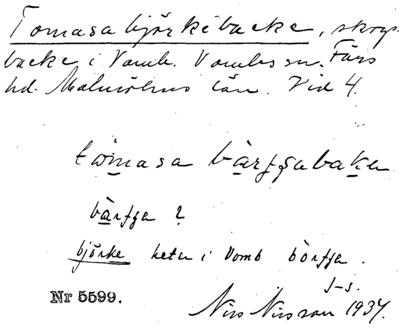 Tomasa björkebacke, skogs-
backe i Vomb. Vombs sn. Färs
hd. Malmöhus län. Vid 4.
tomasa bårfsabaka
bårfsa ?
björke heter i Vomb bôrfsa.
J-s.
Nr 5599.
Nils Nilsson 1937.